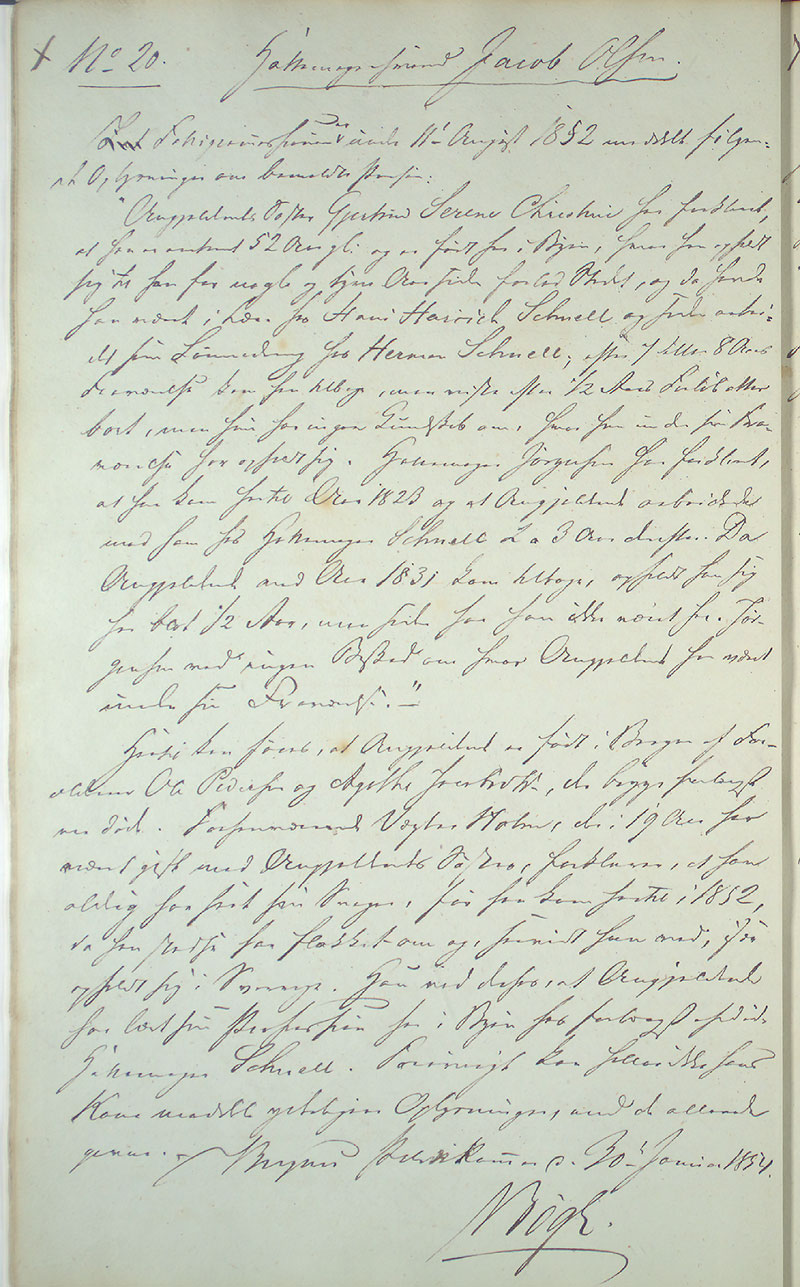 No 20. Hattemagersvend Jacob Olsen.
Fattigcommissionen under 11' August 1852 meddelt følgen-
de Oplysninger om bemeldte Person:
"Angjeldendes Søster Gjertrud Serene Christine har forklaret,
at han er omtrent 52 Aar gl. og er født her i Byen, hvor han opholdt
sig til han for nogle og tyve Aar siden forlod Stedet, og da havde
han været i Lære hos Hans Hinrich Schnell og siden arbei-
det sin hos Herman Schnell; efter 7 eller 8 Aars
Fraværelse kom han tilbage, men reiste efter 1/2 Aars Forløb atter
bort, men hun har ingen Kundskab om, hvor han under sin Fra-
værelse har opholdt sig. Hattemager Jørgensen har forklaret,
at han kom hertil Aar 1823 og at Angjeldende arbeidede
med ham hos Hattemager Schnell 2 a 3 Aar derefter. Da
Angjeldende ved Aar 1831 kom tilbage, opholdt han sig
her blot 1/2 Aar, men siden har han ikke været her. Jør-
gensen ved ingen Besked om hvor Angjeldende har været
under sin Fraværelse."
Hertil kan føies, at Angjeldende er født i Bergen af For-
ældrene Ole Pedersen og Agethe Jacobsdtr, der begge forlængst
ere døde. Forhenværende Vægter Holm, der i 19 Aar har
været gift med Angjeldendes Søster, forklarer, at han
aldrig har seet sin Svoger, før han kom hertil i 1852,
da han stedse har flakket om og, saavidt han ved, især
opholdt sig i Sverige. Han ved derhos, at Angjeldende
har lært sin Profession her i Byen hos forlængst afdøde
Hattemager Schnell. Forøvrigt kan heller ikke hans
Kone meddele yderligere Oplysninger, end de allerede
givne. — Bergens Politikammer d. 30' Januar 1854.